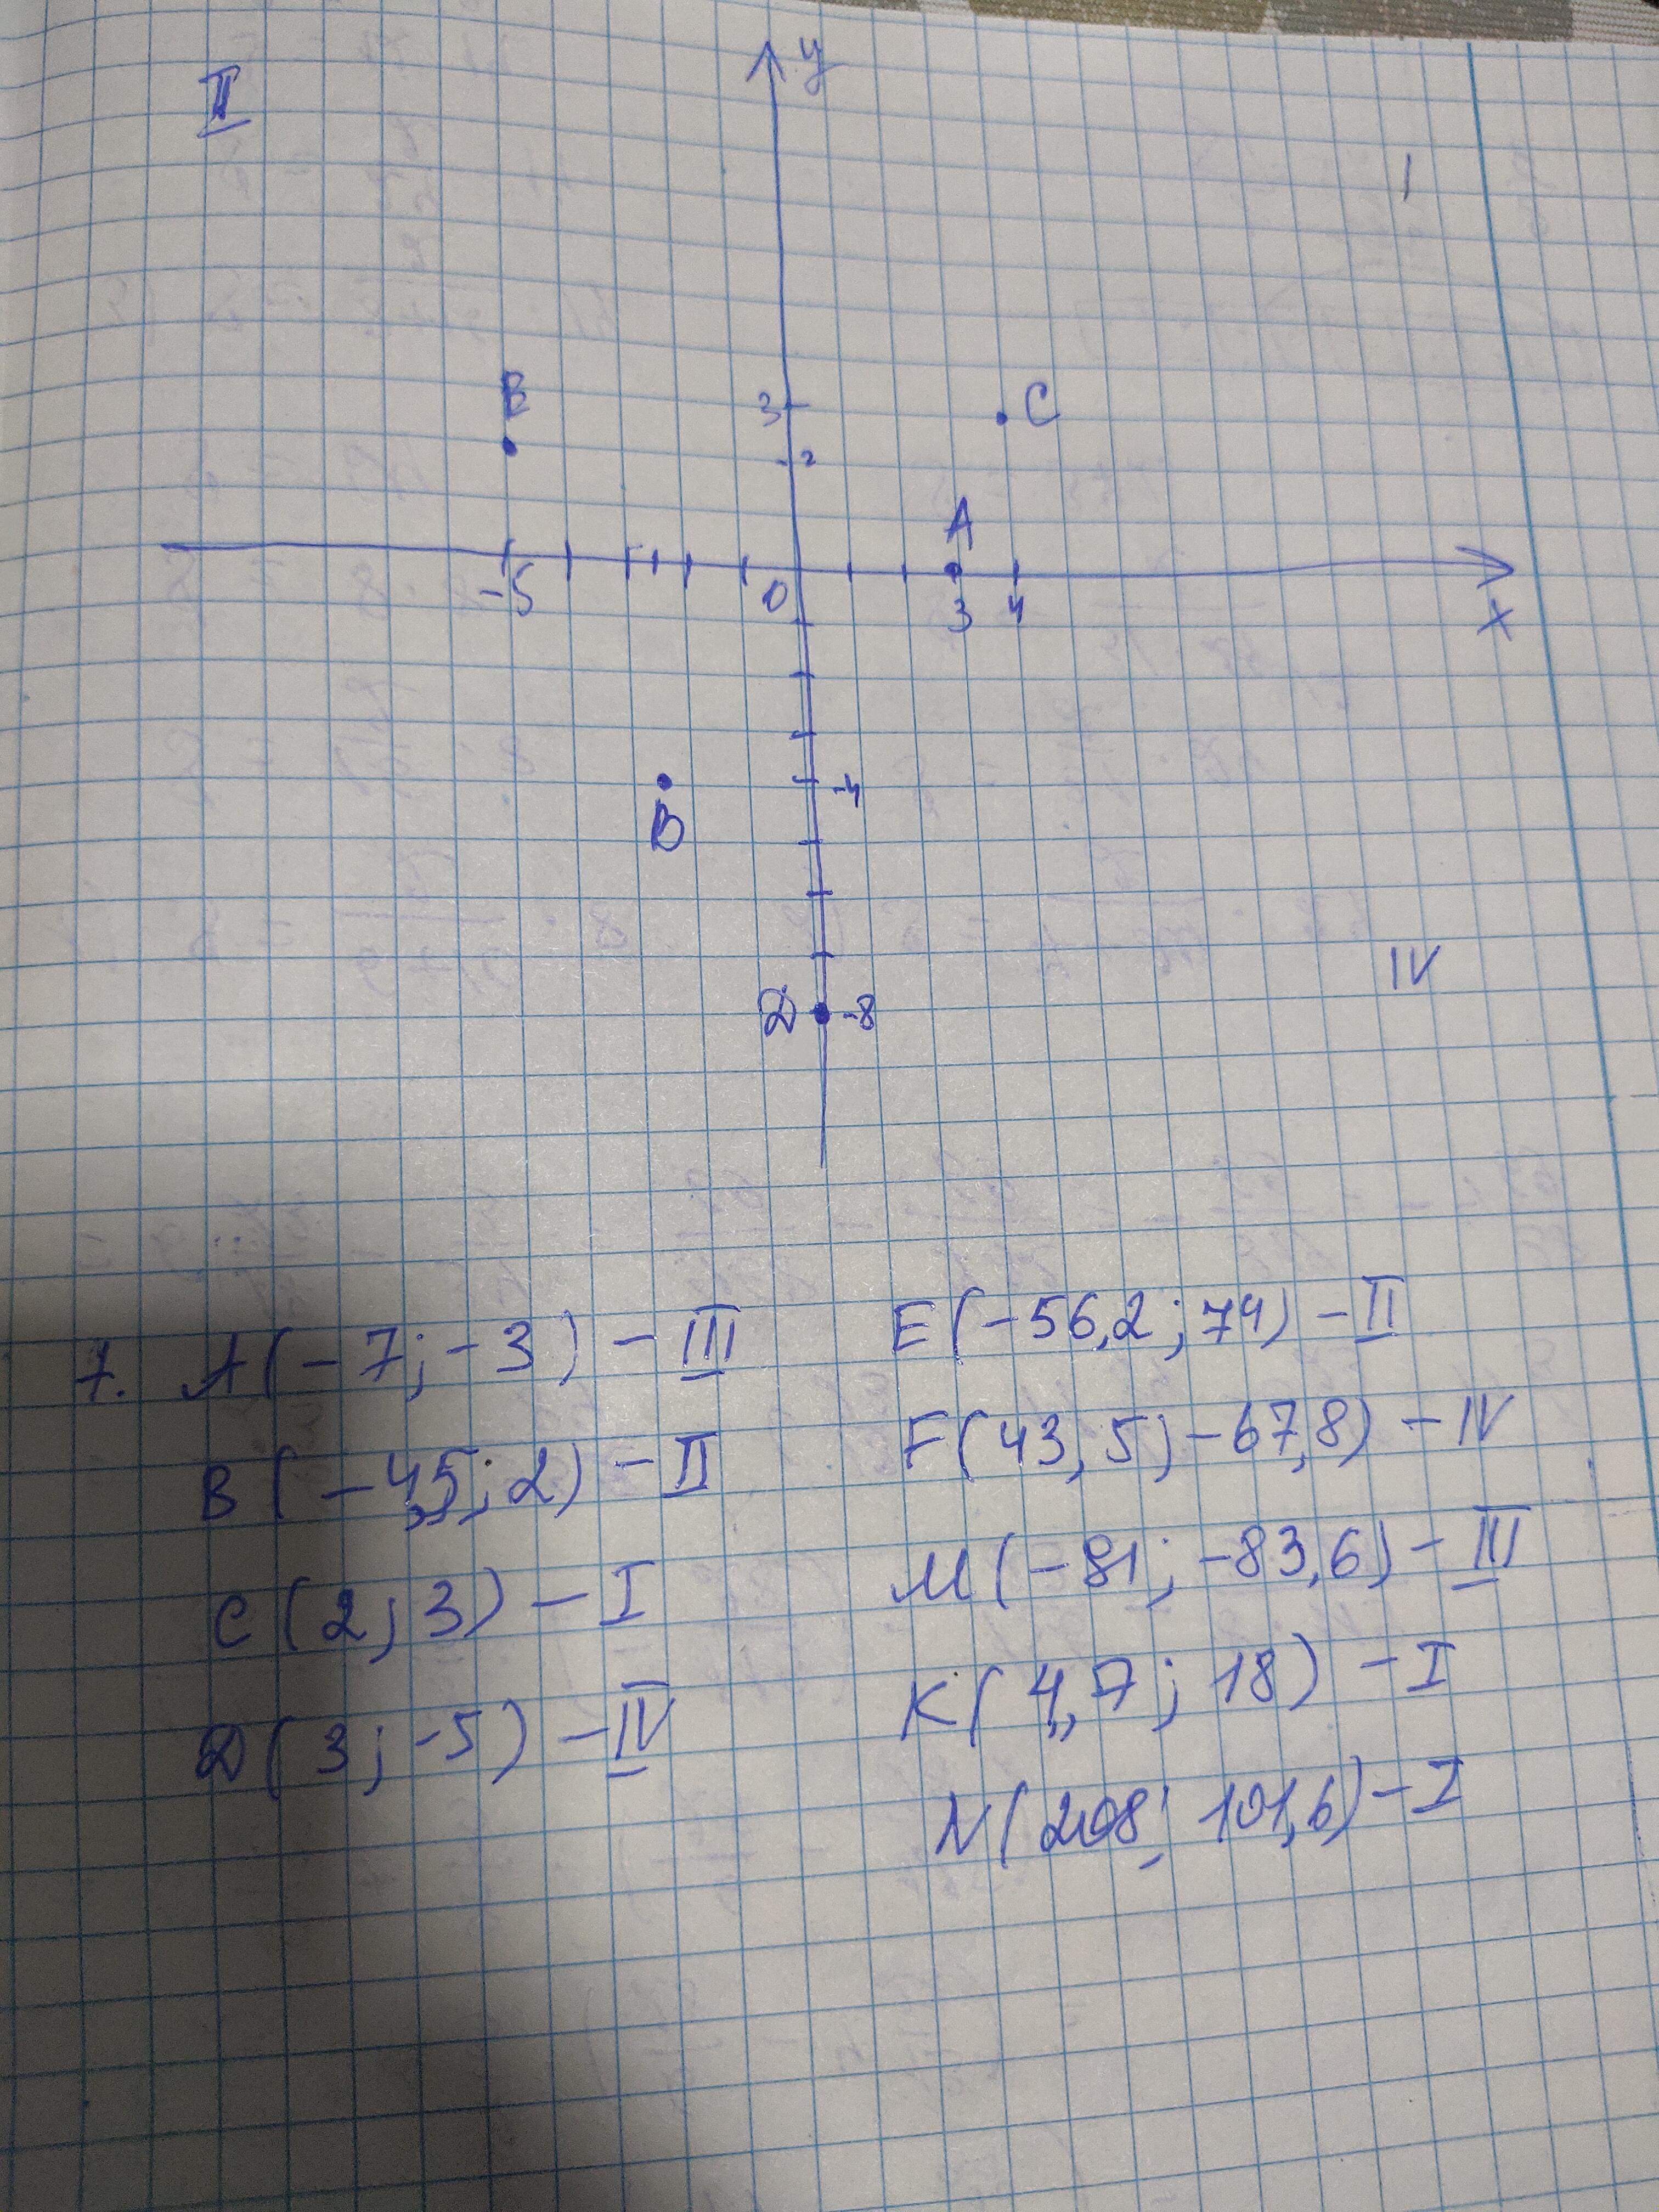 II
y
I
B
3
C
2
A
-5
0
3
4
x
-4
B
IV
D
-8
7. A(-7; -3) - III
B(-4,5; 2) - II
C(2; 3) - I
D(3; -5) - IV
E(-56,2; 74) - II
F(43,5; -67,8) - IV
M(-81; -83,6) - III
K(4,7; 18) - I
N(208; 101,6) - I